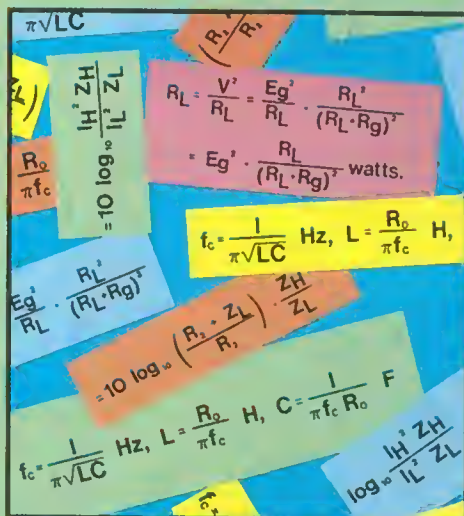 π√LC
(R₂ / R₁)
= 10 log₁₀ I_H² Z_H / I_L² Z_L
R_L = V² / R_L = Eg² / R_L · R_L² / (R_L·Rg)²
= Eg² · R_L / (R_L·Rg)² watts.
R₀ / πf_c
f_c = 1 / π√LC Hz, L = R₀ / πf_c H,
Eg² / R_L · R_L² / (R_L·Rg)²
= 10 log₁₀ (R₂ + Z_L / R₁) · Z_H / Z_L
f_c = 1 / π√LC Hz, L = R₀ / πf_c H, C = 1 / πf_c R₀ F
log₁₀ I_H² Z_H / I_L² Z_L
f_c =